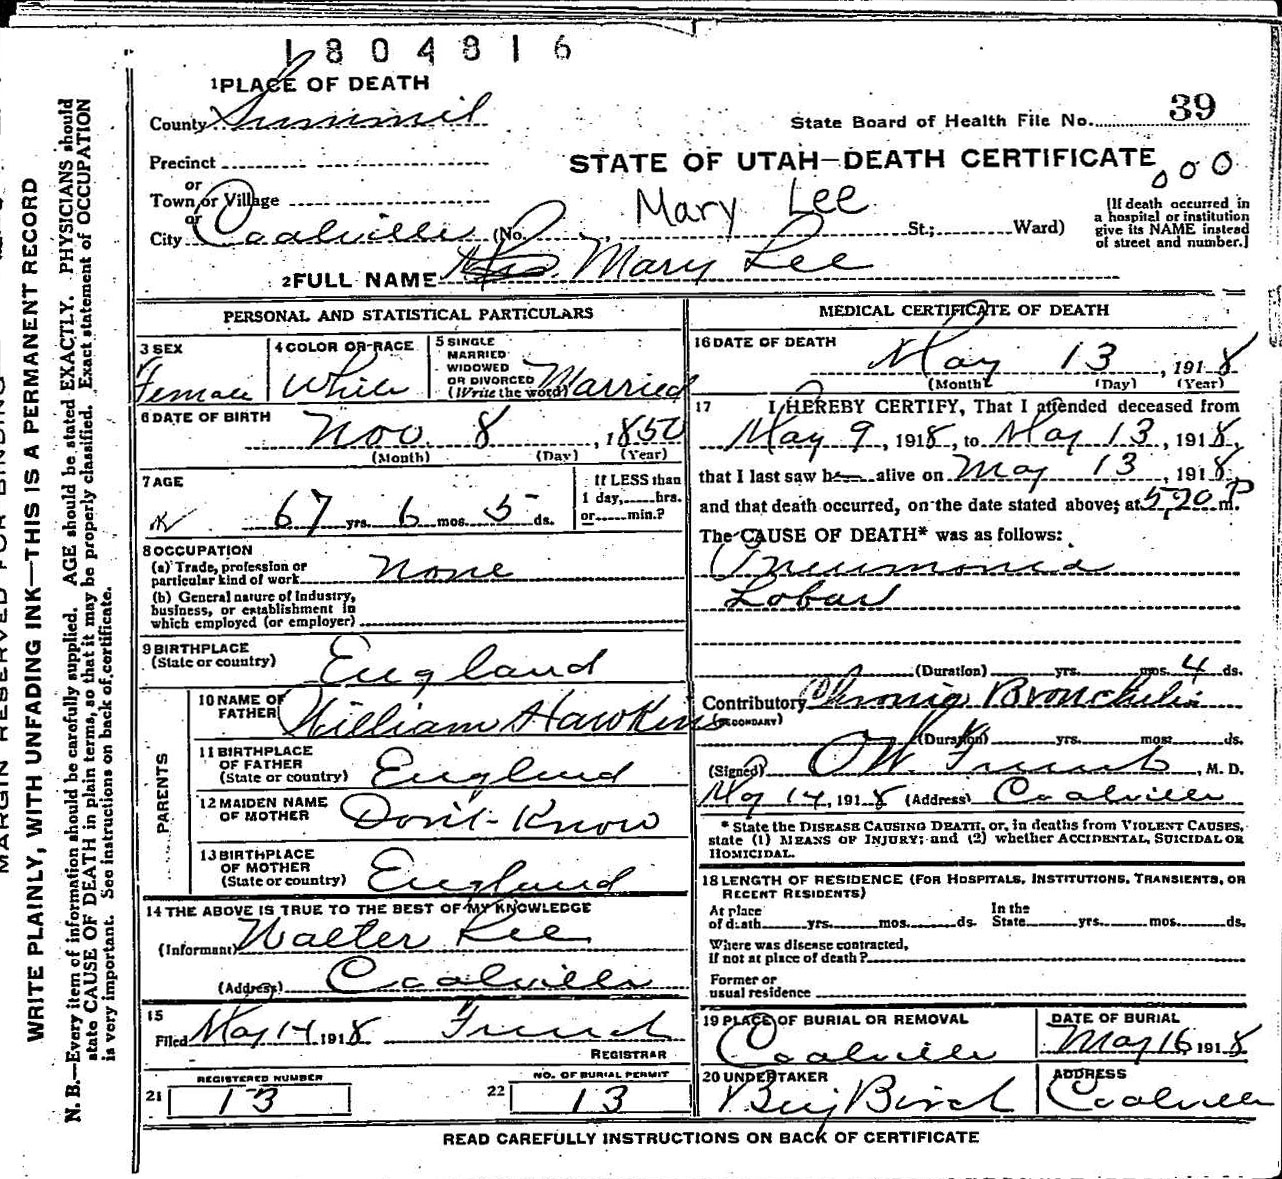 1804816
1 PLACE OF DEATH
County Summit
State Board of Health File No. 39
Precinct
STATE OF UTAH—DEATH CERTIFICATE
000
or
Town or Village
or
City Coalville (No. Mary Lee St.; Ward)
[If death occurred in
a hospital or institution
give its NAME instead
of street and number.]
2 FULL NAME Mrs. Mary Lee
PERSONAL AND STATISTICAL PARTICULARS
3 SEX
Female
4 COLOR OR RACE
White
5 SINGLE
MARRIED
WIDOWED
OR DIVORCED
(Write the word) Married
6 DATE OF BIRTH
Nov 8, 1850
(Month) (Day) (Year)
7 AGE
67 yrs. 6 mos. 5 ds.
If LESS than
1 day, hrs.
or min.?
8 OCCUPATION
(a) Trade, profession or
particular kind of work None
(b) General nature of Industry,
business, or establishment in
which employed (or employer)
9 BIRTHPLACE
(State or country) England
PARENTS
10 NAME OF
FATHER William Hawkins
11 BIRTHPLACE
OF FATHER
(State or country) England
12 MAIDEN NAME
OF MOTHER Don't Know
13 BIRTHPLACE
OF MOTHER
(State or country) England
14 THE ABOVE IS TRUE TO THE BEST OF MY KNOWLEDGE
(Informant) Walter Lee
(Address) Coalville
15
Filed May 14 1918 French
REGISTRAR
21 REGISTERED NUMBER
13
22 NO. OF BURIAL PERMIT
13
MEDICAL CERTIFICATE OF DEATH
16 DATE OF DEATH
May 13, 1918
(Month) (Day) (Year)
17 I HEREBY CERTIFY, That I attended deceased from
May 9, 1918, to May 13, 1918,
that I last saw h alive on May 13, 1918,
and that death occurred, on the date stated above; at 5:20 P m.
The CAUSE OF DEATH* was as follows:
Pneumonia
Lobar
(Duration) yrs. mos. 4 ds.
Contributory Chronic Bronchitis
(SECONDARY)
(Duration) yrs. mos. ds.
(Signed) O W. French, M. D.
May 14, 1918 (Address) Coalville
* State the DISEASE CAUSING DEATH, or, in deaths from VIOLENT CAUSES,
state (1) MEANS OF INJURY; and (2) whether ACCIDENTAL, SUICIDAL OR
HOMICIDAL.
18 LENGTH OF RESIDENCE (FOR HOSPITALS, INSTITUTIONS, TRANSIENTS, OR
RECENT RESIDENTS)
At place
of death yrs. mos. ds.
In the
State yrs. mos. ds.
Where was disease contracted,
if not at place of death?
Former or
usual residence
19 PLACE OF BURIAL OR REMOVAL
Coalville
DATE OF BURIAL
May 16, 1918
20 UNDERTAKER
Benj Birch
ADDRESS
Coalville
READ CAREFULLY INSTRUCTIONS ON BACK OF CERTIFICATE
MARGIN RESERVED FOR BINDING
WRITE PLAINLY, WITH UNFADING INK—THIS IS A PERMANENT RECORD
N. B.—Every item of information should be carefully supplied. AGE should be stated EXACTLY. PHYSICIANS should
state CAUSE OF DEATH in plain terms, so that it may be properly classified. Exact statement of OCCUPATION
is very important. See instructions on back of certificate.